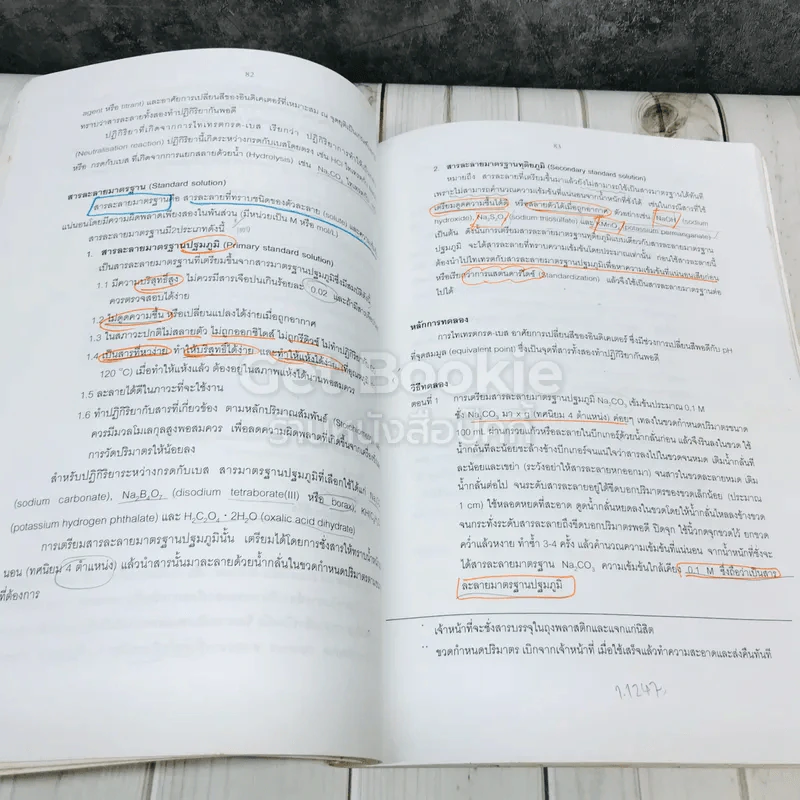 82
agent หรือ titrant) และอาศัยการเปลี่ยนสีของอินดิเคเตอร์ที่เหมาะสม ณ จุดยุติ
ทราบว่าสารละลายทั้งสองทำปฏิกิริยากันพอดี
ปฏิกิริยาที่เกิดจากการไทเทรตกรด-เบส เรียกว่า ปฏิกิริยา
(Neutralisation reaction) ปฏิกิริยานี้เกิดระหว่างกรดกับเบสโดยตรง เช่น HCl
หรือ กรดกับเบส ที่เกิดจากการแยกสลายด้วยน้ำ (Hydrolysis) เช่น Na₂CO₃
สารละลายมาตรฐาน (Standard solution)
สารละลายมาตรฐานคือ สารละลายที่ทราบชนิดของตัวละลาย (solute) และ
แน่นอนโดยมีความผิดพลาดเพียงสองในพันส่วน (มีหน่วยเป็น M หรือ mol/L)
สารละลายมาตรฐานมี 2 ประเภทดังนี้
1. สารละลายมาตรฐานปฐมภูมิ (Primary standard solution)
เป็นสารละลายมาตรฐานที่เตรียมขึ้นจากสารมาตรฐานปฐมภูมิซึ่งมีสมบัติ
1.1 มีความบริสุทธิ์สูง ไม่ควรมีสารเจือปนเกินร้อยละ 0.02 และ
ควรตรวจสอบได้ง่าย
1.2 ไม่ดูดความชื้น หรือเปลี่ยนแปลงได้ง่ายเมื่อถูกอากาศ
1.3 ในสภาวะปกติไม่สลายตัว ไม่ถูกออกซิไดส์ ไม่ถูกรีดิวซ์
1.4 เป็นสารที่หาง่าย ทำให้บริสุทธิ์ได้ง่าย และทำให้แห้งได้ง่าย
120 °C) เมื่อทำให้แห้งแล้ว ต้องอยู่ในสภาพแห้งได้นานพอสมควร
1.5 ละลายได้ดีในภาวะที่จะใช้งาน
1.6 ทำปฏิกิริยากับสารที่เกี่ยวข้อง ตามหลักปริมาณสัมพันธ์
ควรมีมวลโมเลกุลสูงพอสมควร เพื่อลดความผิดพลาดที่เกิดขึ้นจาก
การวัดปริมาตรให้น้อยลง
สำหรับปฏิกิริยาระหว่างกรดกับเบส สารมาตรฐานปฐมภูมิที่เลือกใช้ได้แก่
(sodium carbonate), Na₂B₄O₇ (disodium tetraborate(III) หรือ borax),
(potassium hydrogen phthalate) และ H₂C₂O₄ · 2H₂O (oxalic acid dihydrate)
การเตรียมสารละลายมาตรฐานปฐมภูมินั้น เตรียมได้โดยการชั่งสารให้ทราบน้ำหนัก
นอน (ทศนิยม 4 ตำแหน่ง) แล้วนำสารนั้นมาละลายด้วยน้ำกลั่นในขวดกำหนดปริมาตร
ที่ต้องการ
2. สารละลายมาตรฐานทุติยภูมิ (Secondary standard solution)
หมายถึง สารละลายที่เตรียมขึ้นมาแล้วยังไม่สามารถใช้เป็นสารมาตรฐานได้ทันที
เพราะไม่สามารถคำนวณความเข้มข้นที่แน่นอนจากน้ำหนักที่ชั่งได้ เช่นในกรณีสารที่ใช้
เตรียมดูดความชื้นได้ดี หรือสลายตัวได้เมื่อถูกอากาศ ตัวอย่างเช่น NaOH (sodium
hydroxide), Na₂S₂O₃ (sodium triosulfate) และ (potassium permanganate)
เป็นต้น ดังนั้นการเตรียมสารละลายมาตรฐานทุติยภูมิแบบเดียวกับสารละลายมาตรฐาน
ปฐมภูมิ จะได้สารละลายที่ทราบความเข้มข้นโดยประมาณเท่านั้น ก่อนใช้สารละลายนี้
ต้องนำไปไทเทรตกับสารละลายมาตรฐานปฐมภูมิเพื่อหาความเข้มข้นที่แน่นอนเสียก่อน
หรือเรียกว่าการแสตนดาร์ไดซ์ (standardization) แล้วจึงใช้เป็นสารละลายมาตรฐานต่อ
ไปได้
หลักการทดลอง
การไทเทรตกรด-เบส อาศัยการเปลี่ยนสีของอินดิเคเตอร์ ซึ่งมีช่วงการเปลี่ยนสีพอดีกับ pH
ที่จุดสมมูล (equivalent point) ซึ่งเป็นจุดที่สารทั้งสองทำปฏิกิริยากันพอดี
วิธีทดลอง
ตอนที่ 1 การเตรียมสารละลายมาตรฐานปฐมภูมิ Na₂CO₃ เข้มข้นประมาณ 0.1 M
ชั่ง Na₂CO₃ มา x g (ทศนิยม 4 ตำแหน่ง) ค่อยๆ เทลงในขวดกำหนดปริมาตรขนาด
100 mL ผ่านกรวยแก้วหรือละลายในบีกเกอร์ด้วยน้ำกลั่นก่อน แล้วจึงรินลงในขวด ใช้
น้ำกลั่นทีละน้อยชะล้างข้างบีกเกอร์จนแน่ใจว่าสารลงไปในขวดจนหมด เติมน้ำกลั่นที
ละน้อยและเขย่า (ระวังอย่าให้สารละลายหกออกมา) จนสารในขวดละลายหมด เติม
น้ำกลั่นต่อไป จนระดับสารละลายอยู่ใต้ขีดบอกปริมาตรของขวดเล็กน้อย (ประมาณ
1 cm) ใช้หลอดหยดที่สะอาด ดูดน้ำกลั่นหยดลงในขวดโดยให้น้ำกลั่นไหลลงข้างขวด
จนกระทั่งระดับสารละลายถึงขีดบอกปริมาตรพอดี ปิดจุก ใช้นิ้วกดจุกขวดไว้ ยกขวด
คว่ำแล้วหงาย ทำซ้ำ 3-4 ครั้ง แล้วคำนวณความเข้มข้นที่แน่นอน จากน้ำหนักที่ชั่งจะ
ได้สารละลายมาตรฐาน Na₂CO₃ ความเข้มข้นใกล้เคียง 0.1 M ซึ่งถือว่าเป็นสาร
ละลายมาตรฐานปฐมภูมิ
* เจ้าหน้าที่จะชั่งสารบรรจุในถุงพลาสติกและแจกแก่นิสิต
** ขวดกำหนดปริมาตร เบิกจากเจ้าหน้าที่ เมื่อใช้เสร็จแล้วทำความสะอาดและส่งคืนทันที
1.1247
Get Bookie
ร้านหนังสือมือถือ